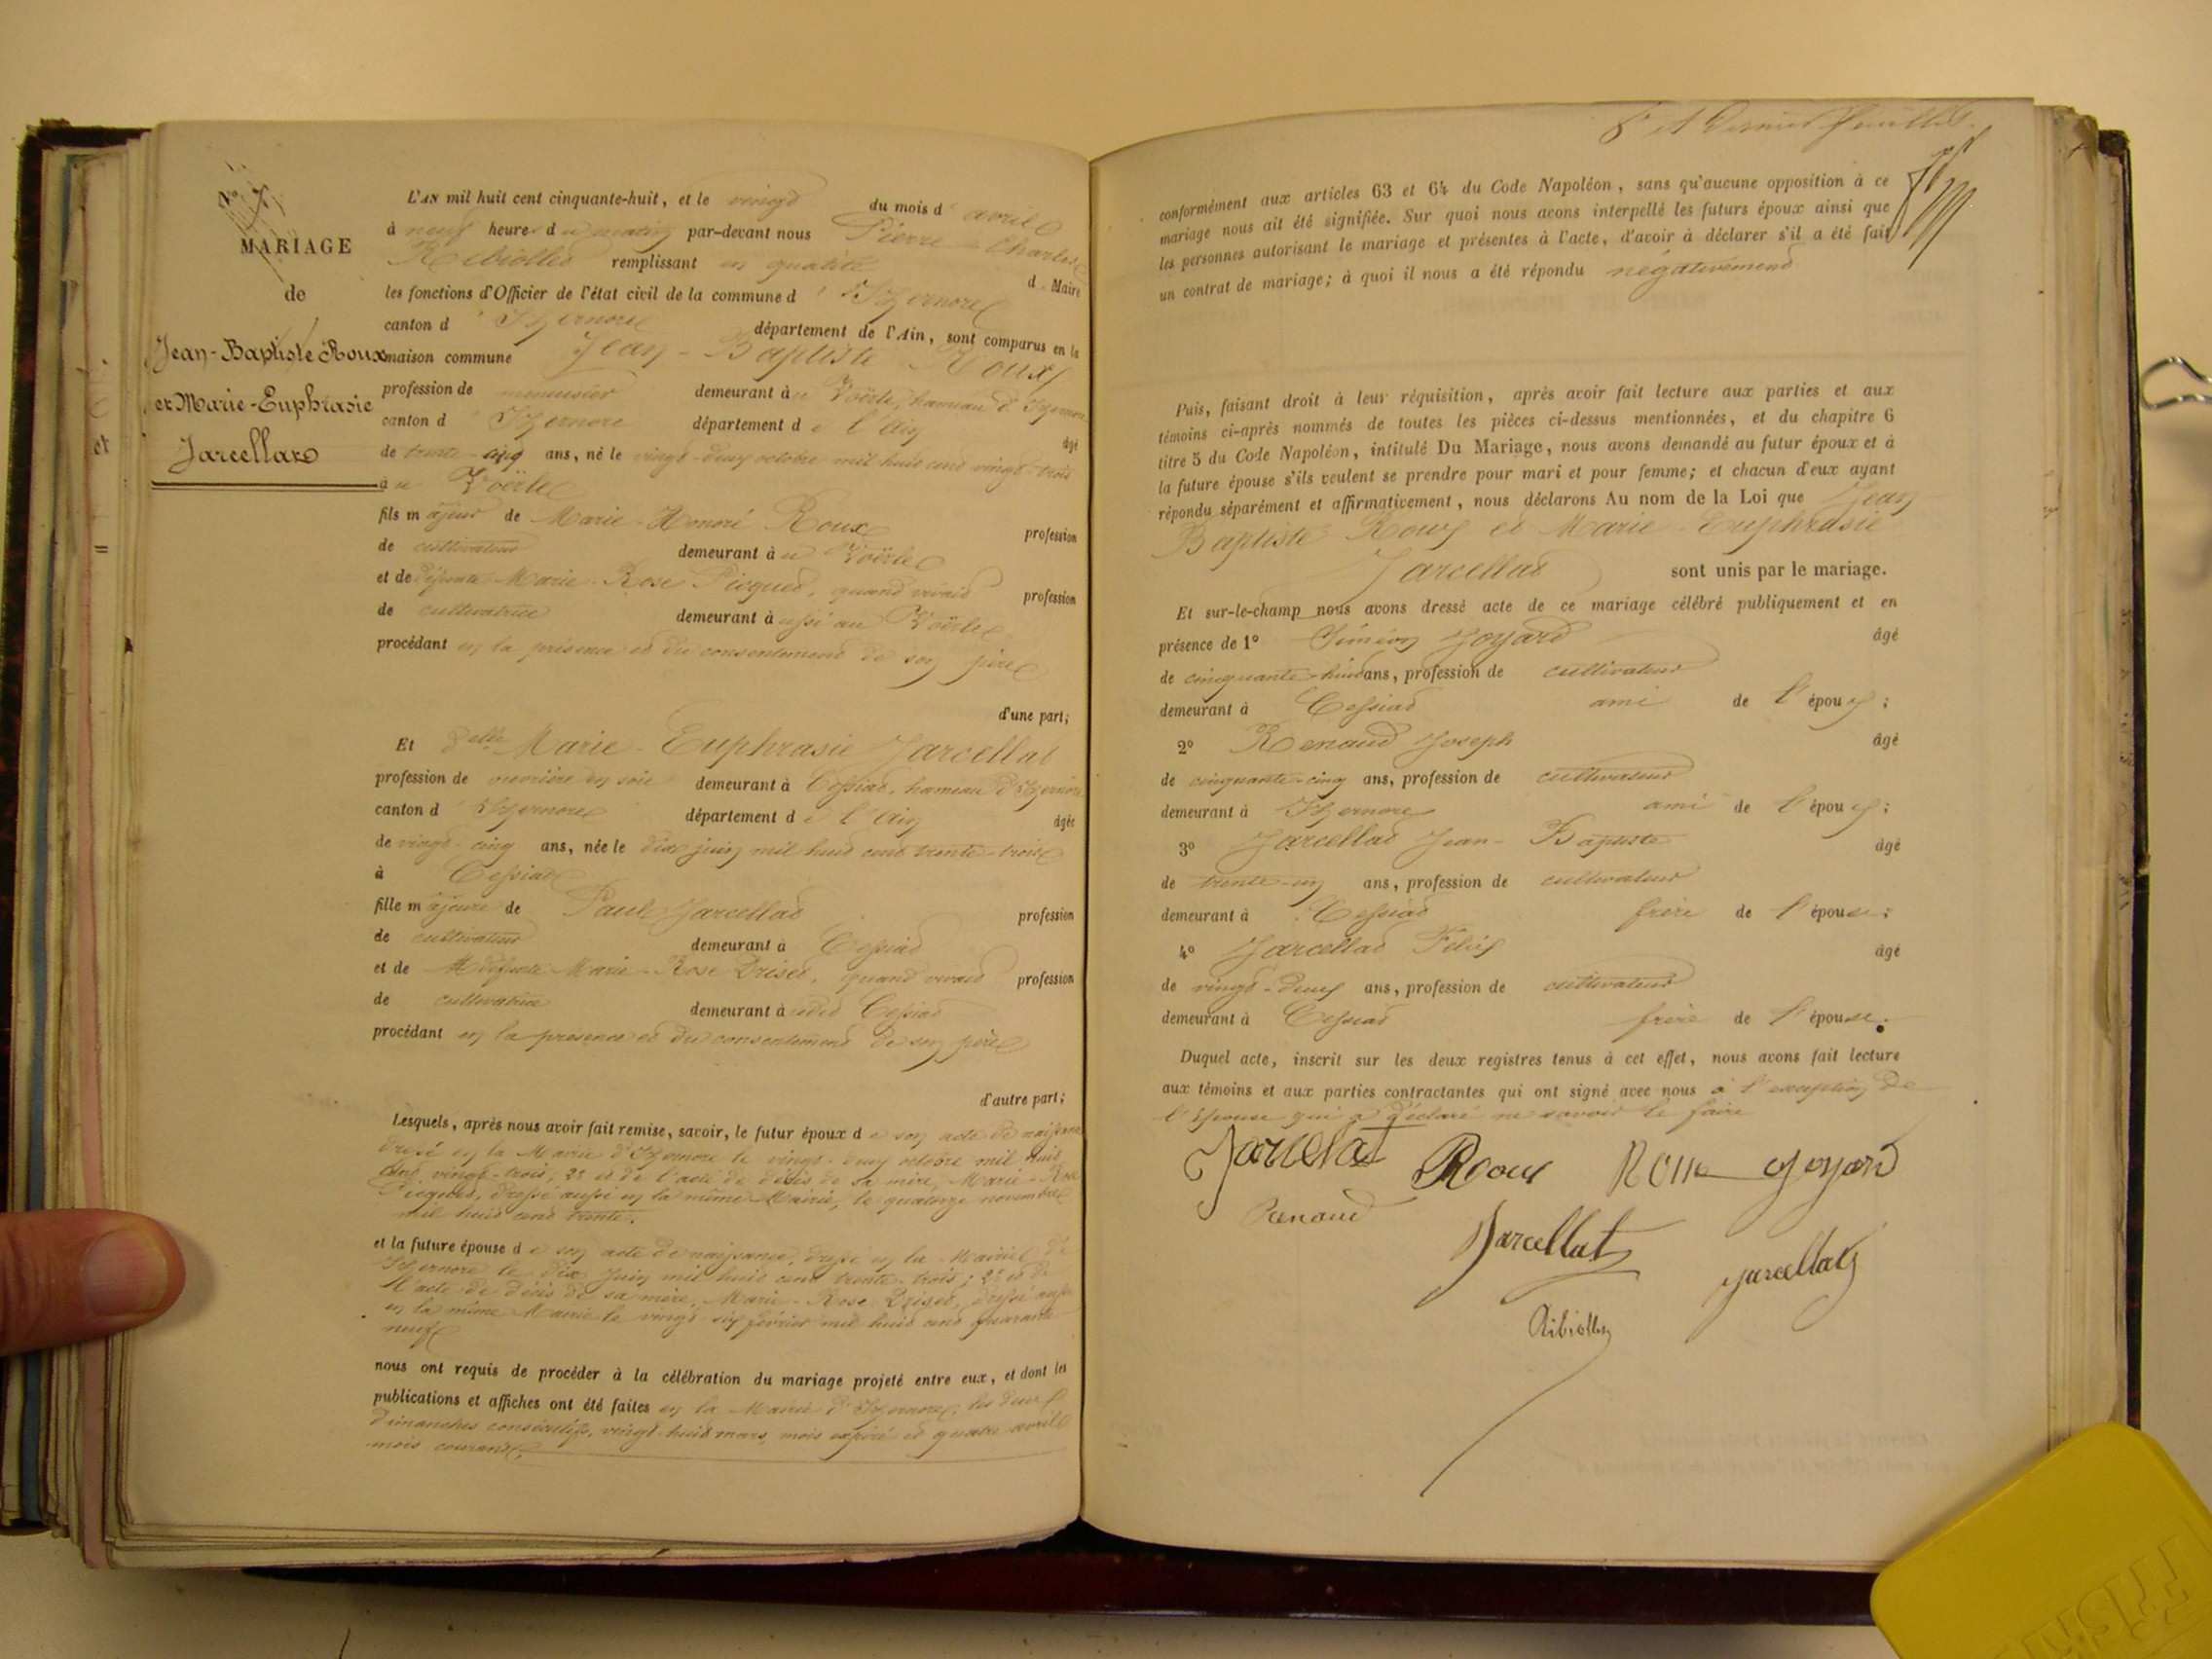 MARIAGE
de
Jean-Baptiste Roux
et Marie-Euphrasie
Jarcellat
L'AN mil huit cent cinquante-huit, et le vingt du mois d'avril
à neuf heures du matin par-devant nous Pierre-Charles
Rebiolles remplissant en qualité de Maire
les fonctions d'Officier de l'état civil de la commune d'Izernore
canton d'Izernore département de l'Ain, sont comparus en la
maison commune Jean-Baptiste Roux
profession de menuisier demeurant au Voërle, hameau d'Izernore
canton d'Izernore département de l'Ain âgé
de trente-cinq ans, né le vingt-deux octobre mil huit cent vingt-trois
au Voërle
fils majeur de Marie-Honoré Roux profession
de cultivateur demeurant au Voërle
et de défunte Marie-Rose Picquet, quand vivait profession
de cultivatrice demeurant aussi au Voërle
procédant en la présence et du consentement de son père
d'une part;
Et delle Marie-Euphrasie Jarcellat
profession de ouvrière en soie demeurant à Cessiat, hameau d'Izernore
canton d'Izernore département de l'Ain âgée
de vingt-cinq ans, née le dix juin mil huit cent trente-trois
à Cessiat
fille majeure de Paul Jarcellat profession
de cultivateur demeurant à Cessiat
et de défunte Marie-Rose quand vivait profession
de cultivatrice demeurant audit Cessiat
procédant en la présence et du consentement de son père
d'autre part;
Lesquels, après nous avoir fait remise, savoir, le futur époux de son acte de naissance
dressé en la Mairie d'Izernore le vingt-deux octobre mil huit
cent vingt-trois; 2º et de l'acte de décès de sa mère, Marie-Rose
Picquet, dressé aussi en la même Mairie, le quatorze novembre
mil huit cent trente.
et la future épouse de son acte de naissance, dressé en la Mairie de
Izernore le dix Juin mil huit cent trente-trois; 2º et de
l'acte de décès de sa mère, Marie-Rose dressé aussi
en la même Mairie le vingt-six février mil huit cent quarante
neuf
nous ont requis de procéder à la célébration du mariage projeté entre eux, et dont les
publications et affiches ont été faites en la Mairie d'Izernore, les deux
dimanches consécutifs, vingt-huit mars, mois expiré et quatre avril
mois courant.
6e et dernier feuillet
conformément aux articles 63 et 64 du Code Napoléon, sans qu'aucune opposition à ce
mariage nous ait été signifiée. Sur quoi nous avons interpellé les futurs époux ainsi que
les personnes autorisant le mariage et présentes à l'acte, d'avoir à déclarer s'il a été fait
un contrat de mariage; à quoi il nous a été répondu négativement
Puis, faisant droit à leur réquisition, après avoir fait lecture aux parties et aux
témoins ci-après nommés de toutes les pièces ci-dessus mentionnées, et du chapitre 6
titre 5 du Code Napoléon, intitulé Du Mariage, nous avons demandé au futur époux et à
la future épouse s'ils veulent se prendre pour mari et pour femme; et chacun d'eux ayant
répondu séparément et affirmativement, nous déclarons Au nom de la Loi que Jean
Baptiste Roux et Marie-Euphrasie
Jarcellat sont unis par le mariage.
Et sur-le-champ nous avons dressé acte de ce mariage célébré publiquement et en
présence de 1º Siméon Goyard âgé
de cinquante-huit ans, profession de cultivateur
demeurant à Cessiat ami de l'époux;
2º Renaud Joseph âgé
de cinquante-cinq ans, profession de cultivateur
demeurant à Izernore ami de l'époux;
3º Jarcellat Jean-Baptiste âgé
de trente-un ans, profession de cultivateur
demeurant à Cessiat frère de l'épouse;
4º Jarcellat Félix âgé
de vingt-deux ans, profession de cultivateur
demeurant à Cessiat frère de l'épouse.
Duquel acte, inscrit sur les deux registres tenus à cet effet, nous avons fait lecture
aux témoins et aux parties contractantes qui ont signé avec nous à l'exception de
l'Epouse qui a déclaré ne savoir le faire
Jarcelat Roux Roux goyard
Renaud
Jarcellat
Jarcellat
Ribiolles